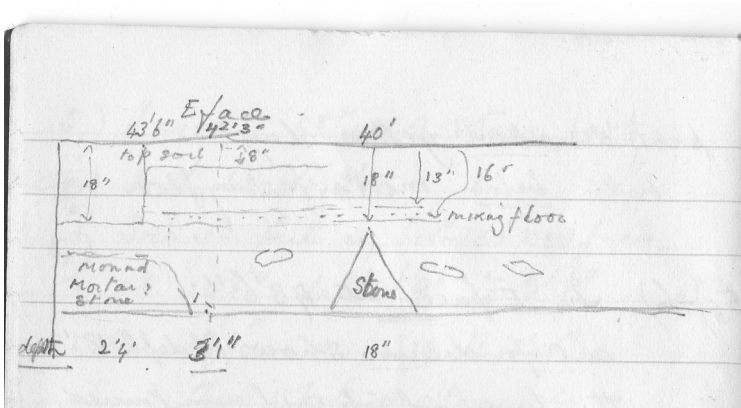 E face
43'6" 42'3" 40'
top soil 8"
18" 18" 13" 16"
mixing floor
Mound
Mortar &
Stone
Stone
depth 2'4' 3'1" 18"